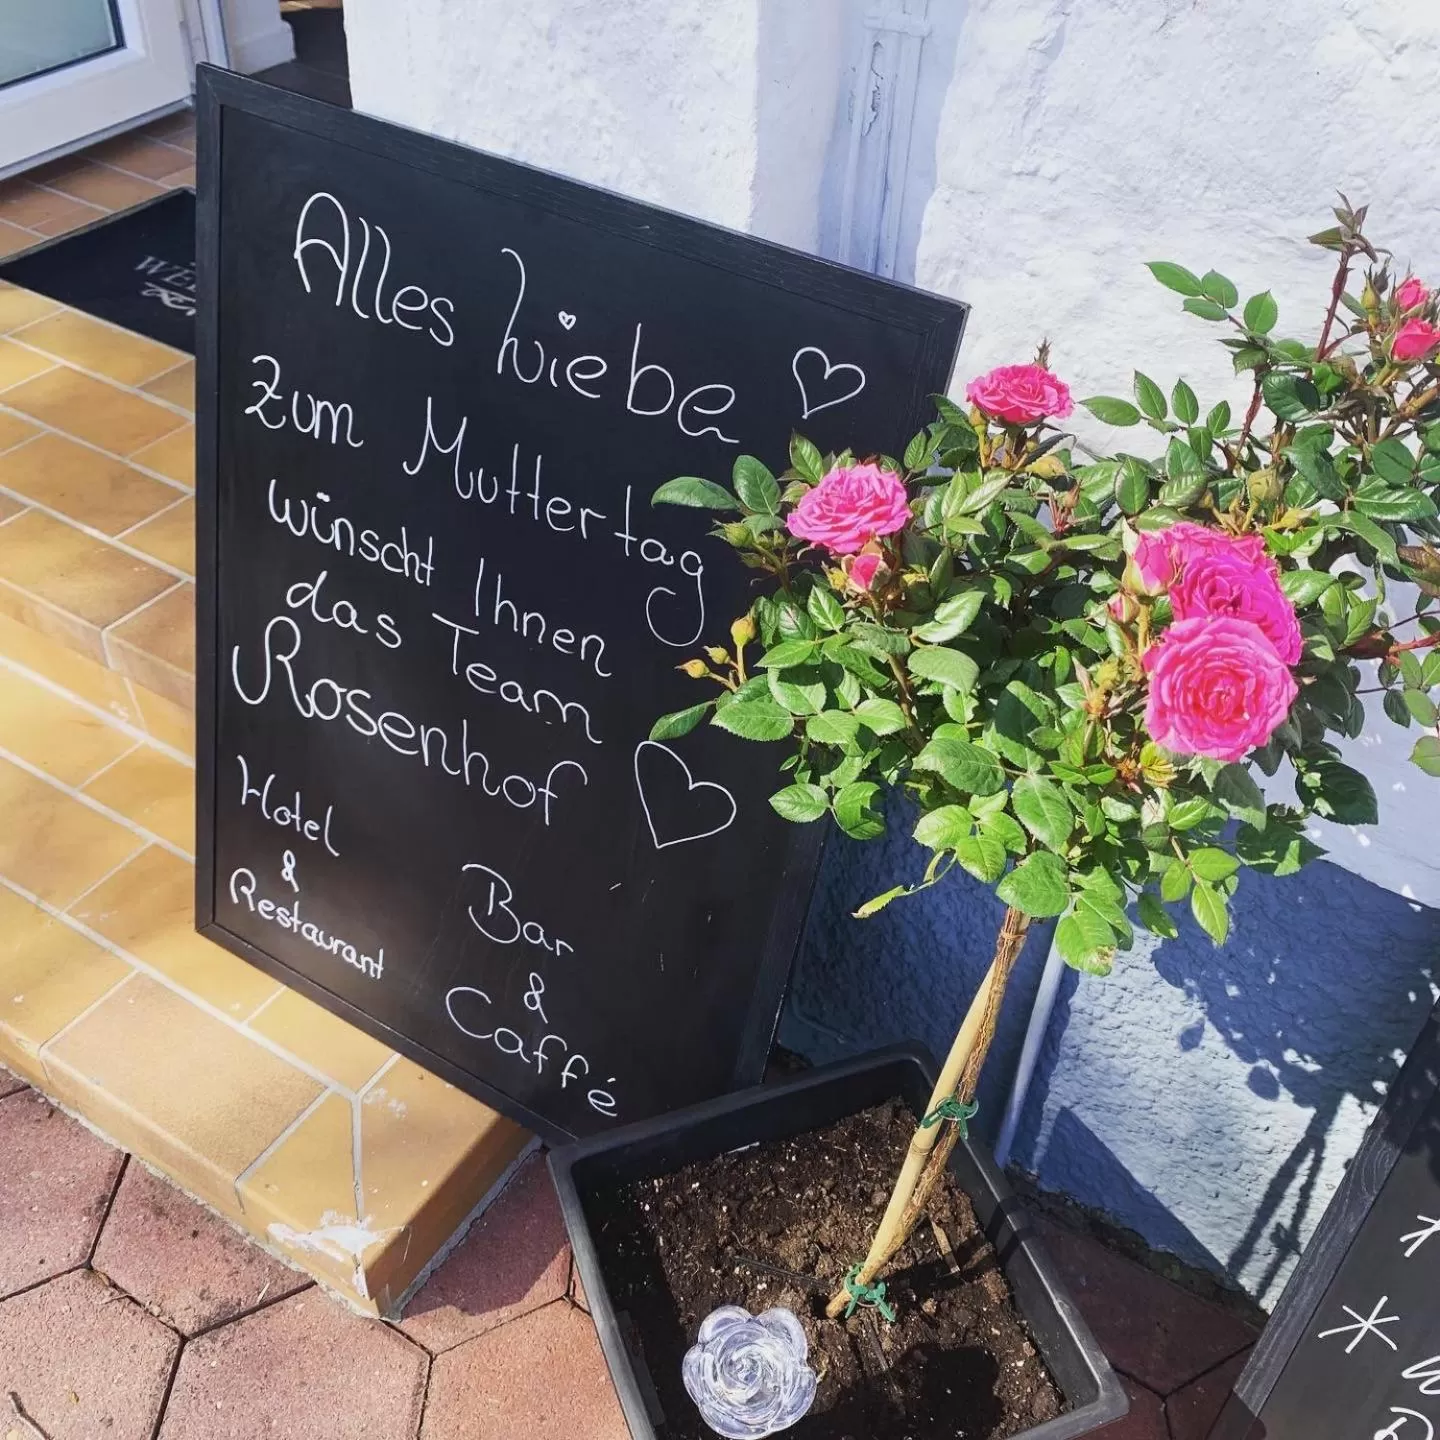 Alles Liebe
zum Muttertag
wünscht Ihnen
das Team
Rosenhof
Hotel
&
Restaurant
Bar
&
Caffé